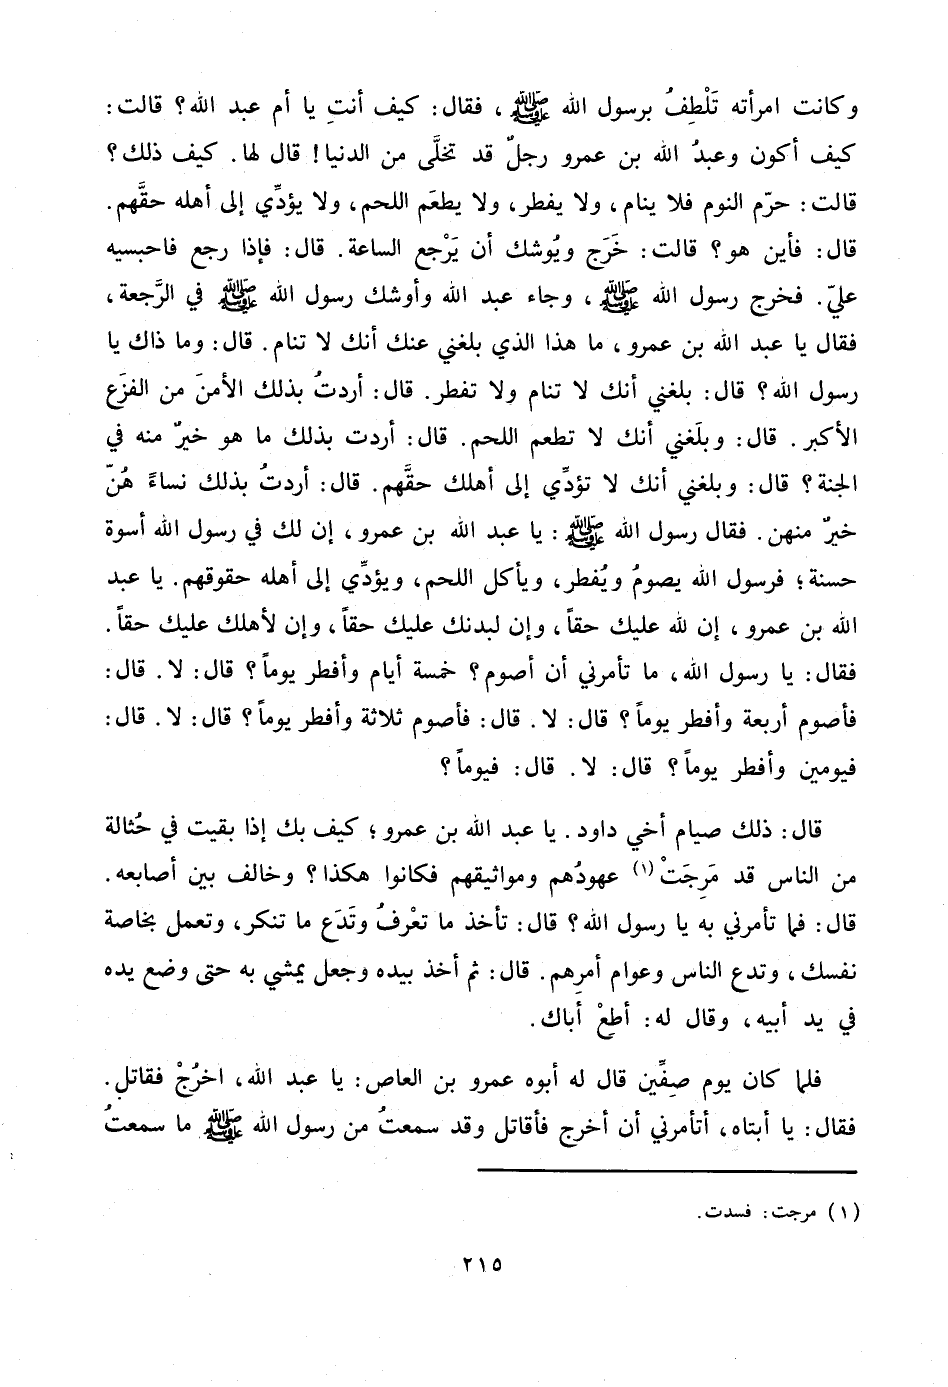 وكانت امرأته تَلْطِفُ برسول الله ﷺ، فقال: كيف أنتِ يا أم عبد الله؟ قالت:
كيف أكون وعبدُ الله بن عمرو رجلٌ قد تخلَّى من الدنيا! قال لها. كيف ذلك؟
قالت: حرّم النوم فلا ينام، ولا يفطر، ولا يطعَم اللحم، ولا يؤدِّي إلى أهله حقَّهم.
قال: فأين هو؟ قالت: خَرَج ويُوشك أن يَرْجع الساعة. قال: فإذا رجع فاحبسيه
عليّ. فخرج رسول الله ﷺ، وجاء عبد الله وأوشك رسول الله ﷺ في الرَّجعة،
فقال يا عبد الله بن عمرو، ما هذا الذي بلغني عنك أنك لا تنام. قال: وما ذاك يا
رسول الله؟ قال: بلغني أنك لا تنام ولا تفطر. قال: أردتُ بذلك الأمنَ من الفزَع
الأكبر. قال: وبلَغني أنك لا تطعم اللحم. قال: أردت بذلك ما هو خيرٌ منه في
الجنة؟ قال: وبلغني أنك لا تؤدِّي إلى أهلك حقَّهم. قال: أردتُ بذلك نساءً هُنّ
خيرٌ منهن. فقال رسول الله ﷺ: يا عبد الله بن عمرو، إن لك في رسول الله أسوة
حسنة؛ فرسول الله يصومُ ويُفطر، ويأكل اللحم، ويؤدِّي إلى أهله حقوقهم. يا عبد
الله بن عمرو، إن لله عليك حقاً، وإن لبدنك عليك حقاً، وإن لأهلك عليك حقاً.
فقال: يا رسول الله، ما تأمرني أن أصوم؟ خمسة أيام وأفطر يوماً؟ قال: لا. قال:
فأصوم أربعة وأفطر يوماً؟ قال: لا. قال: فأصوم ثلاثة وأفطر يوماً؟ قال: لا. قال:
فيومين وأفطر يوماً؟ قال: لا. قال: فيوماً؟
قال: ذلك صيام أخي داود. يا عبد الله بن عمرو؛ كيف بك إذا بقيت في حُثالة
من الناس قد مَرِجَتْ (١) عهودُهم ومواثيقهم فكانوا هكذا؟ وخالف بين أصابعه.
قال: فما تأمرني به يا رسول الله؟ قال: تأخذ ما تعْرفُ وتَدَع ما تنكر، وتعمل بخاصة
نفسك، وتدع الناس وعوام أمرِهم. قال: ثم أخذ بيده وجعل يمشي به حتى وضع يده
في يد أبيه، وقال له: أطعْ أباك.
فلما كان يوم صفِّين قال له أبوه عمرو بن العاص: يا عبد الله، اخرُجْ فقاتل.
فقال: يا أبتاه، أتأمرني أن أخرج فأقاتل وقد سمعتُ من رسول الله ﷺ ما سمعتُ
(١) مرجت: فسدت.
٢١٥